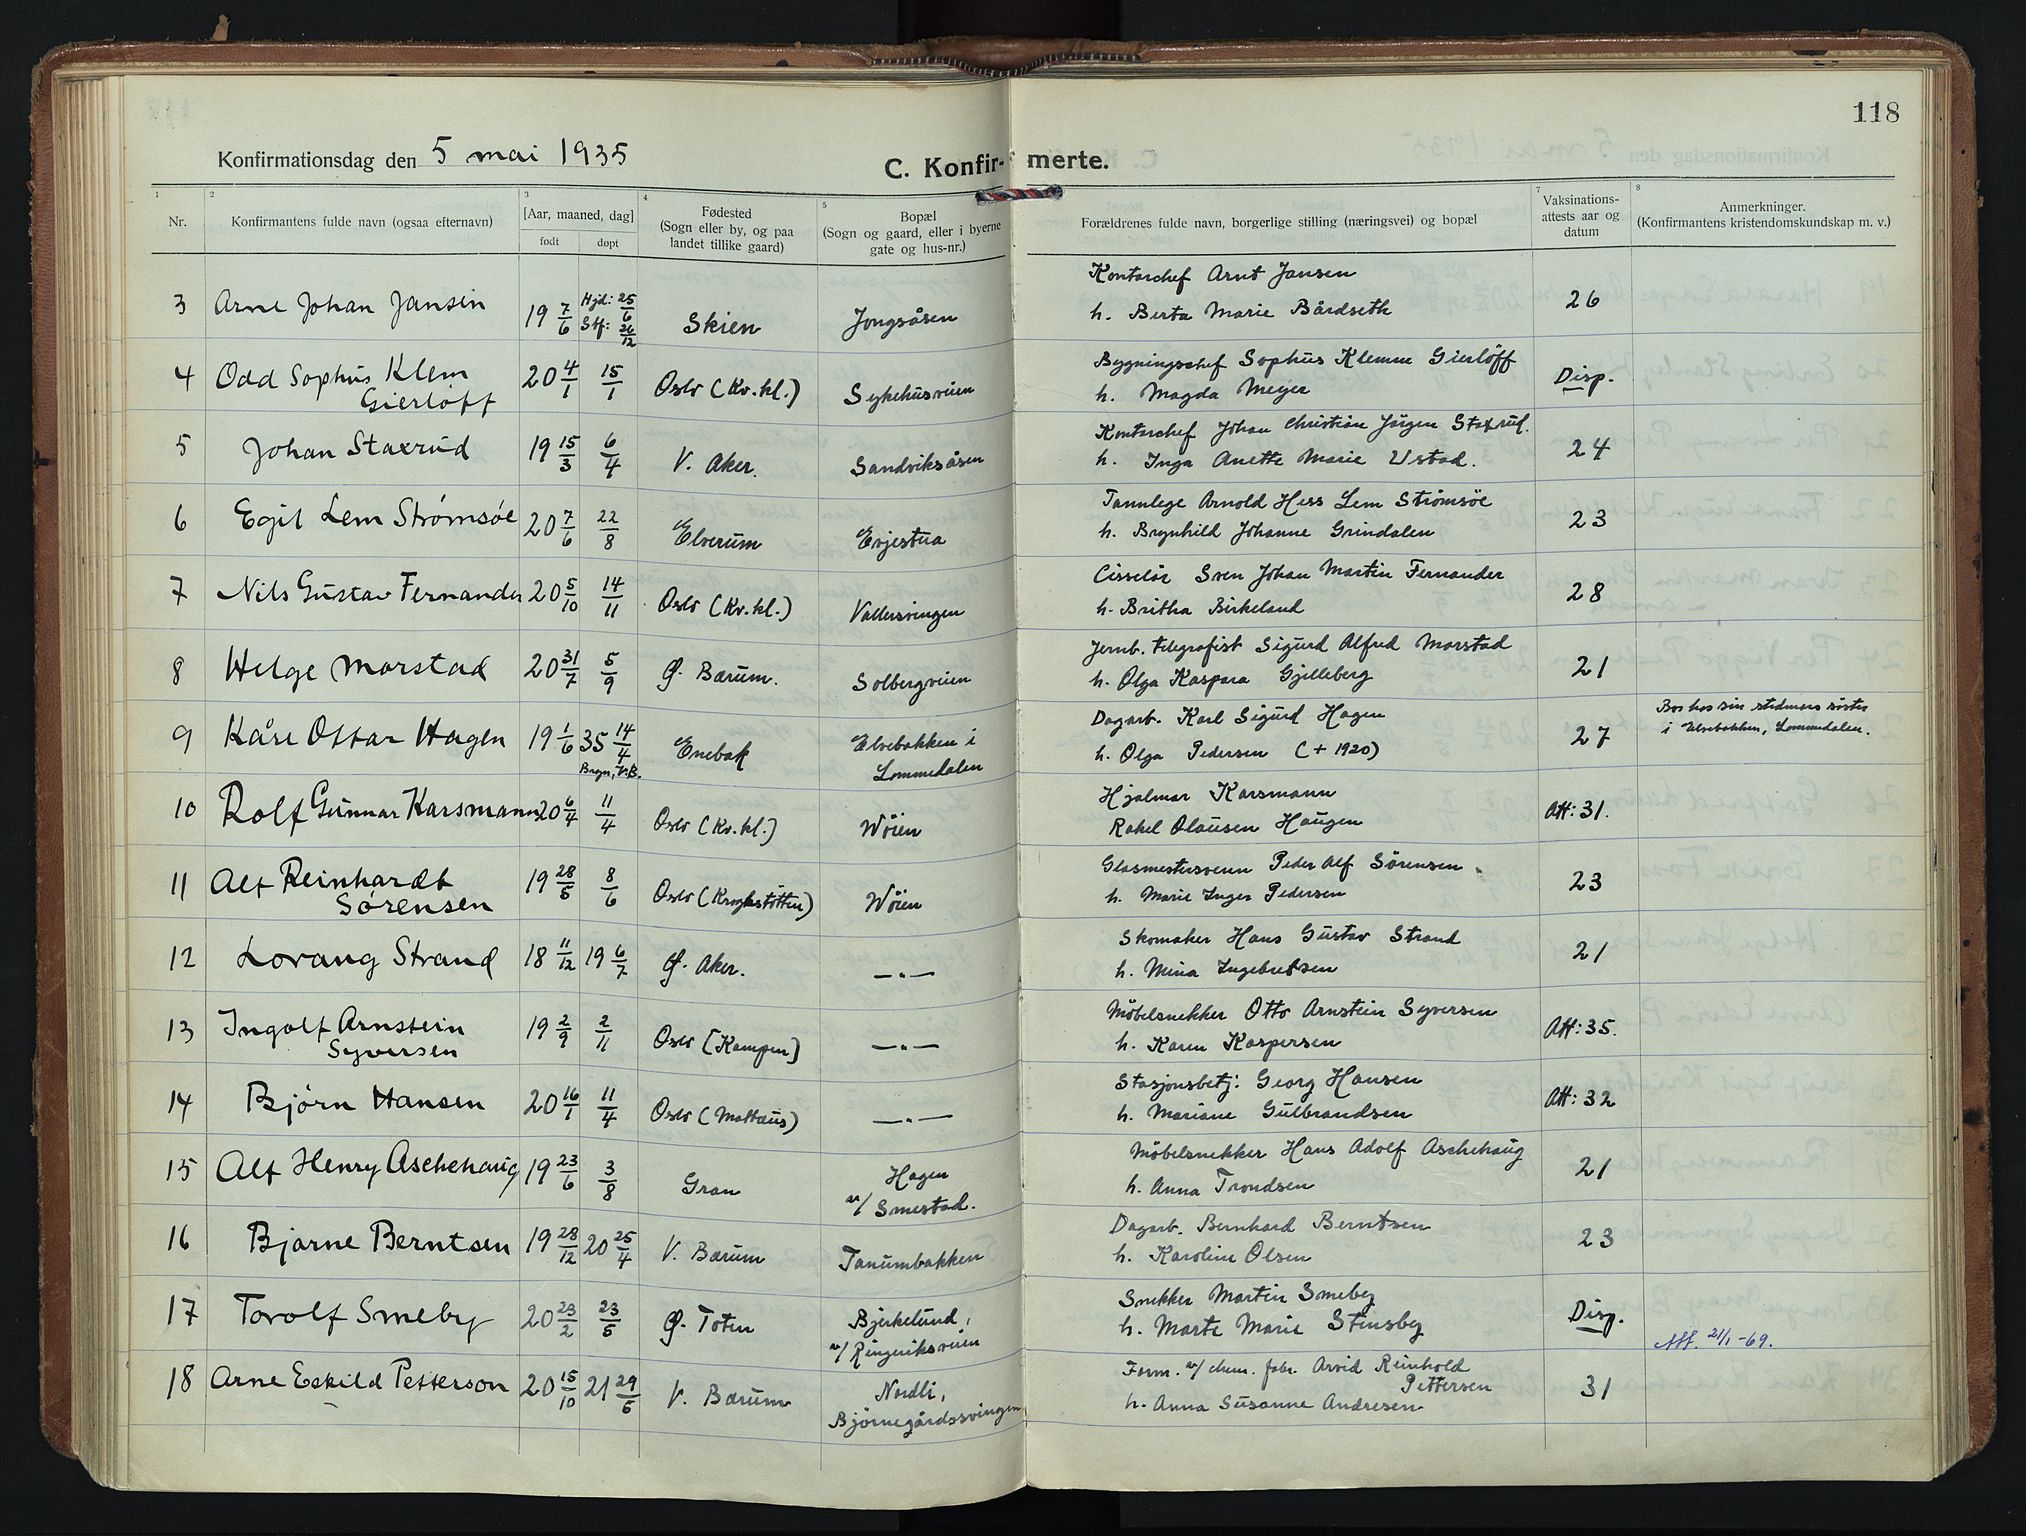 118
Konfirmationsdag den 5 mai 1935
C. Konfir- merte.
1 2 3 4 5 7 8
Nr. Konfirmantens fulde navn (ogsaa efternavn) [Aar, maaned, dag] født døpt
Fødested
(Sogn eller by, og paa
landet tillike gaard)
Bopæl
(Sogn og gaard, eller i byerne
gate og hus-nr.)
Forældrenes fulde navn, borgerlige stilling (næringsvei) og bopæl
Vaksinations-
attests aar og
datum
Anmerkninger.
(Konfirmantens kristendomskundskap m. v.)
3 Arne Johan Jansen 19 7/6 Hjd: 25/6 Stf: 26/12 Skien Jongsåsen
Kontorchef Arnt Jansen
h. Berta Marie Bårdseth 26
4 Odd Sophus Klem
Gierløff 20 4/1 15/1 Oslo (Kv.kl.) Sykehusveien
Bygningschef Sophus Klemm Gierløff
h. Magda Meyer Disp.
5 Johan Staxrud 19 15/3 6/4 V. Aker. Sandviksåsen
Kontorchef Johan Christian Jörgen Staxrud.
h. Inga Anette Marie Ustad. 24
6 Egil Lem Strømsöe 20 7/6 22/8 Elverum Evjestua
Tannlege Arnold Hess Lem Strömsöe
h. Brynhild Johanne Grindalen 23
7 Nils Gustav Fernander 20 5/10 14/11 Oslo (Kv.kl.) Vallersvingen
Ciselör Sven Johan Martin Fernander
h. Britha Birkeland 28
8 Helge Morstad 20 31/7 5/9 Ø. Bærum. Solbergveien
Jernb. telegrafist Sigurd Alfred Morstad
h. Olga Kaspara Gjilleberg 21
9 Kåre Ottar Hagen 19 1/6 35 14/4 Bryn, V.B. Enebak Elvebakken i
Lommedalen
Dagarb. Karl Sigurd Hagen
h. Olga Pedersen (+ 1920) 27
Bor hos sin stedmors søster
i Elvebakken, Lommedalen.
10 Rolf Gunnar Karsmann 20 6/4 11/4 Oslo (Kv.kl.) Wöien
Hjalmar Karsmann
Rakel Olausen Haugen Att: 31.
11 Alf Reinhardt
Sørensen 19 28/5 8/6 Oslo (Kroghstötten) Wöien
Glasmestersvenn Peder Alf Sörensen
h. Marie Inger Pedersen 23
12 Lorang Strand 18 11/12 19 6/7 Ø. Aker. —"—
Skomaker Hans Gustav Strand
h. Mina Ingebretsen 21
13 Ingolf Arnstein
Syversen 19 2/9 2/11 Oslo [Kampen] —"—
Möbelsnekker Otto Arnstein Syversen
h. Karen Kaspersen Att: 35.
14 Bjørn Hansen 20 16/1 11/4 Oslo (Mattæus) —"—
Stasjonsbetj: Georg Hansen
h. Mariane Gulbrandsen Att: 32
15 Alf Henry Aschehaug 19 23/6 3/8 Gran Hagen
v/ Smestad.
Möbelsnekker Hans Adolf Aschehaug
h. Anna Trondsen 21
16 Bjarne Berntsen 19 28/12 20 25/4 V. Bærum Tanumbakken
Dagarb. Bernhard Berntsen
h. Karoline Olsen 23
17 Torolf Smeby 20 23/2 23/5 Ø. Toten Bjerkelund,
v/ Ringeriksveien
Snekker Martin Smeby
h. Marte Marie Stensby Disp.
Att. 21/1-69.
18 Arne Eskild Petterson 20 15/10 21 29/5 V. Bærum Nordli,
Bjørnegårdssvingen
Form. v/ chem. fabr. Arvid Reinhold
Pettersen
h. Anna Susanne Andresen 31